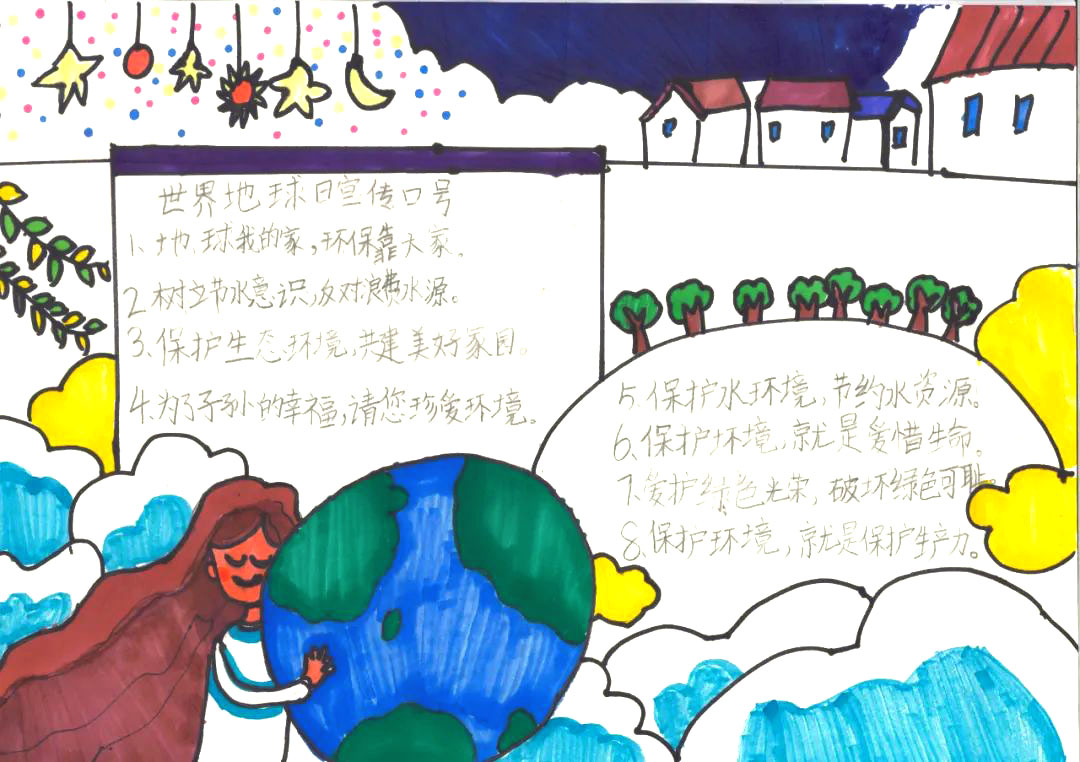 世界地球日宣传口号
1、地球我的家，环保靠大家。
2、树立节水意识，反对浪费水源。
3、保护生态环境，共建美好家园。
4、为了子孙的幸福，请您珍爱环境。
5、保护水环境，节约水资源。
6、保护环境，就是爱惜生命。
7、爱护绿色光荣，破坏绿色可耻。
8、保护环境，就是保护生产力。